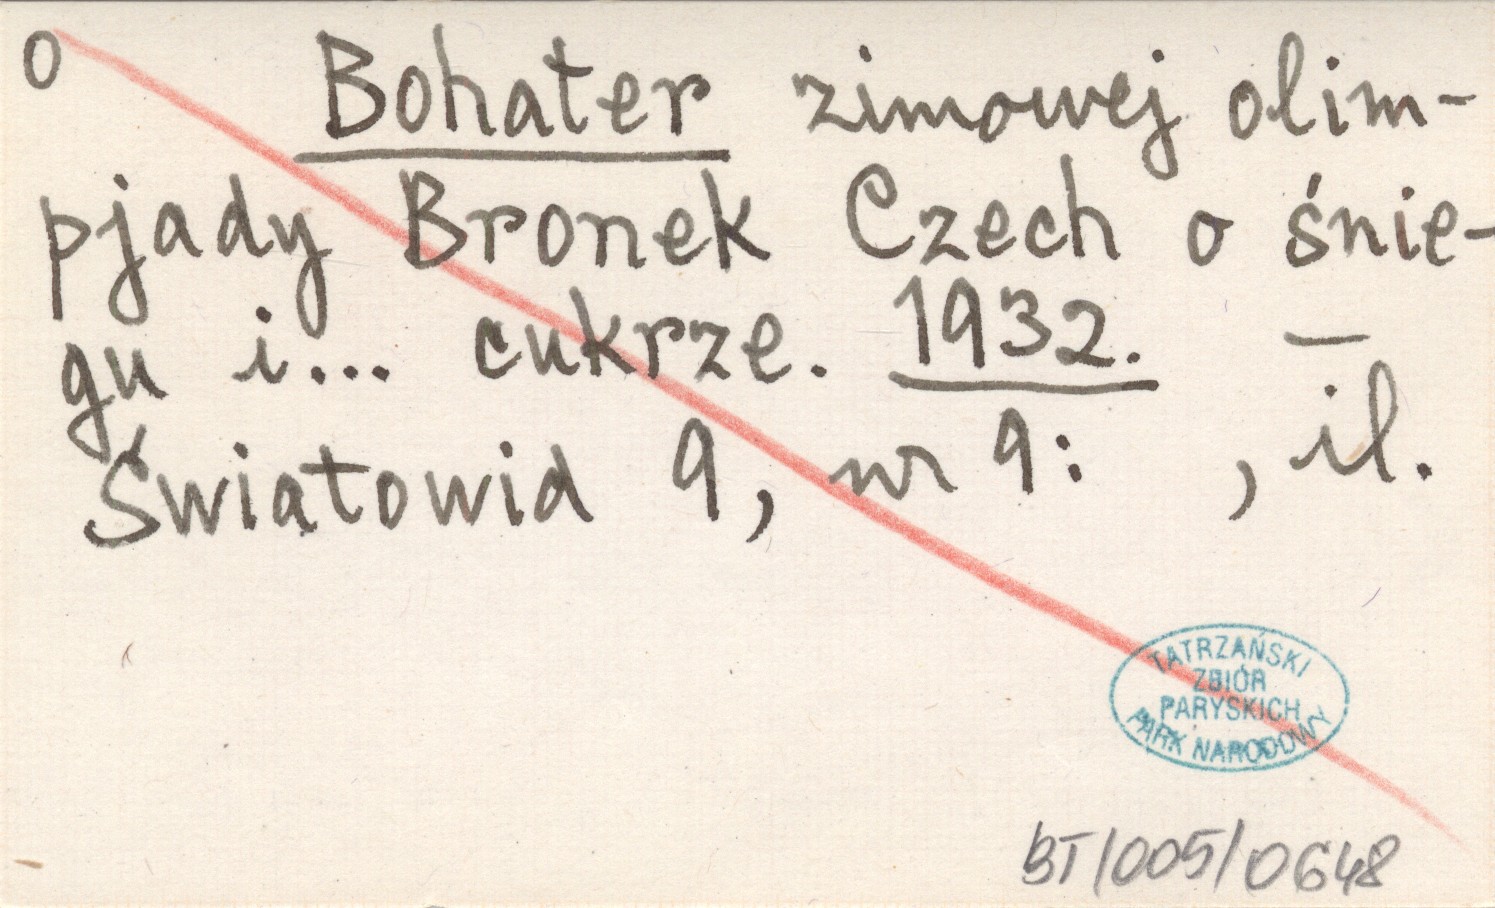 o Bohater zimowej olim-
pjady Bronek Czech o śnie-
gu i... cukrze. 1932. —
Światowid 9, nr 9: , il.
TATRZAŃSKI
ZBIÓR
PARYSKICH
PARK NARODOWY
BT/005/0648